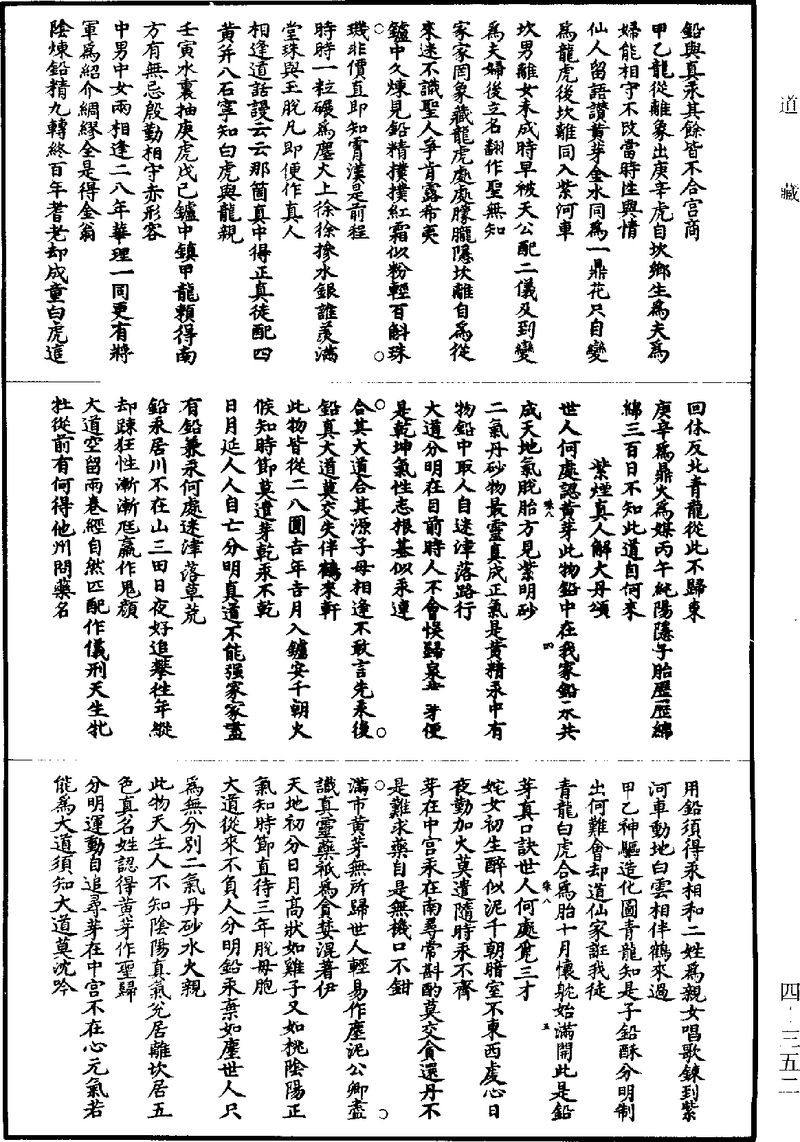 道藏
四-三五二
鉛與真汞其餘皆不合宫商
甲乙龍從離象出庚辛虎自坎鄉生為夫為
婦能相守不改當時性與情
仙人留語讚黄芽金水同為一鼎花只自變
為龍虎後坎離同入紫河車
坎男離女未成時早被天公配二儀及到變
為夫婦後立名翻作聖無知
家家罔象藏龍虎處處朦朧隱坎離自為從
來迷不識聖人爭肯露希夷
鑪中久煉見鉛精撲撲紅霜似粉輕百斛珠
璣非價直即知霄漢是前程
時時一粒碾為塵大上徐徐摻水銀誰羡滿
堂珠與玉脫凡即便作真人
相逢道話謾云云那箇真中得正真徒配四
黄并八石寧知白虎與龍親
壬寅水裏抽庚虎戊己鑪中鎮甲龍賴得南
方有無忌殷勤相守赤形容
中男中女兩相逢二八年華理一同更有將
軍為紹介綢繆全是得金翁
陰煉鉛精九轉終百年耆老却成童白虎這
回休反此青龍從此不歸東
庚辛為鼎火為媒丙午純陽隱子胎歷歷綿
綿三百日不知此道自何來
紫煙真人解大丹頌
世人何處認黄芽此物鉛中在我家鉛水共
成天地氣脫胎方見紫明砂
二氣丹砂物最靈真成正氣是黄精汞中有
物鉛中取人自迷津落路行
大道分明在目前時人不會悞歸泉 芽便
是乾坤氣性志根基似汞連
合其大道合其源子母相逢不敢言先汞後
鉛真大道莫交失伴鶴來軒
此物皆從二八圓吉年吉月入鑪安千朝火
候知時節莫遣芽乾汞不乾
日月延人人自亡分明真道不能强家家盡
有鉛兼汞何處迷津落草荒
鉛汞居川不在山三田日夜好追攀往年縱
却踈狂性漸漸尫羸作鬼顔
大道空留兩卷經自然匹配作儀刑天生牝
牡從前有何得他州問藥名
用鉛須得汞相和二姓為親女唱歌鍊到紫
河車動地白雲相伴鶴來過
甲乙神驅造化圖青龍知是子鉛酥分明制
出何難會却道仙家誑我徒
青龍白虎合為胎十月懷躭始滿開此是鉛
芽真口訣世人何處覓三才
姹女初生醉似泥千朝腤室不東西虔心日
夜勤加火莫遣隨時汞不齊
芽在中宫汞在南尋常斟酌莫交貪還丹不
是難求藥自是無機口不鉗
滿市黄芽無所歸世人輕易作塵泥公卿盡
識真靈藥祇為貪婪混著伊
天地初分日月高狀如雞子又如桃陰陽正
氣知時節直待三年脫母胞
大道從來不負人分明鉛汞棄如塵世人只
為無分别二氣丹砂水火親
此物天生人不知陰陽真氣兊居離坎居五
色真名姓認得黄芽作聖歸
分明運動自追尋芽在中宫不在心元氣若
能為大道須知大道莫沈吟